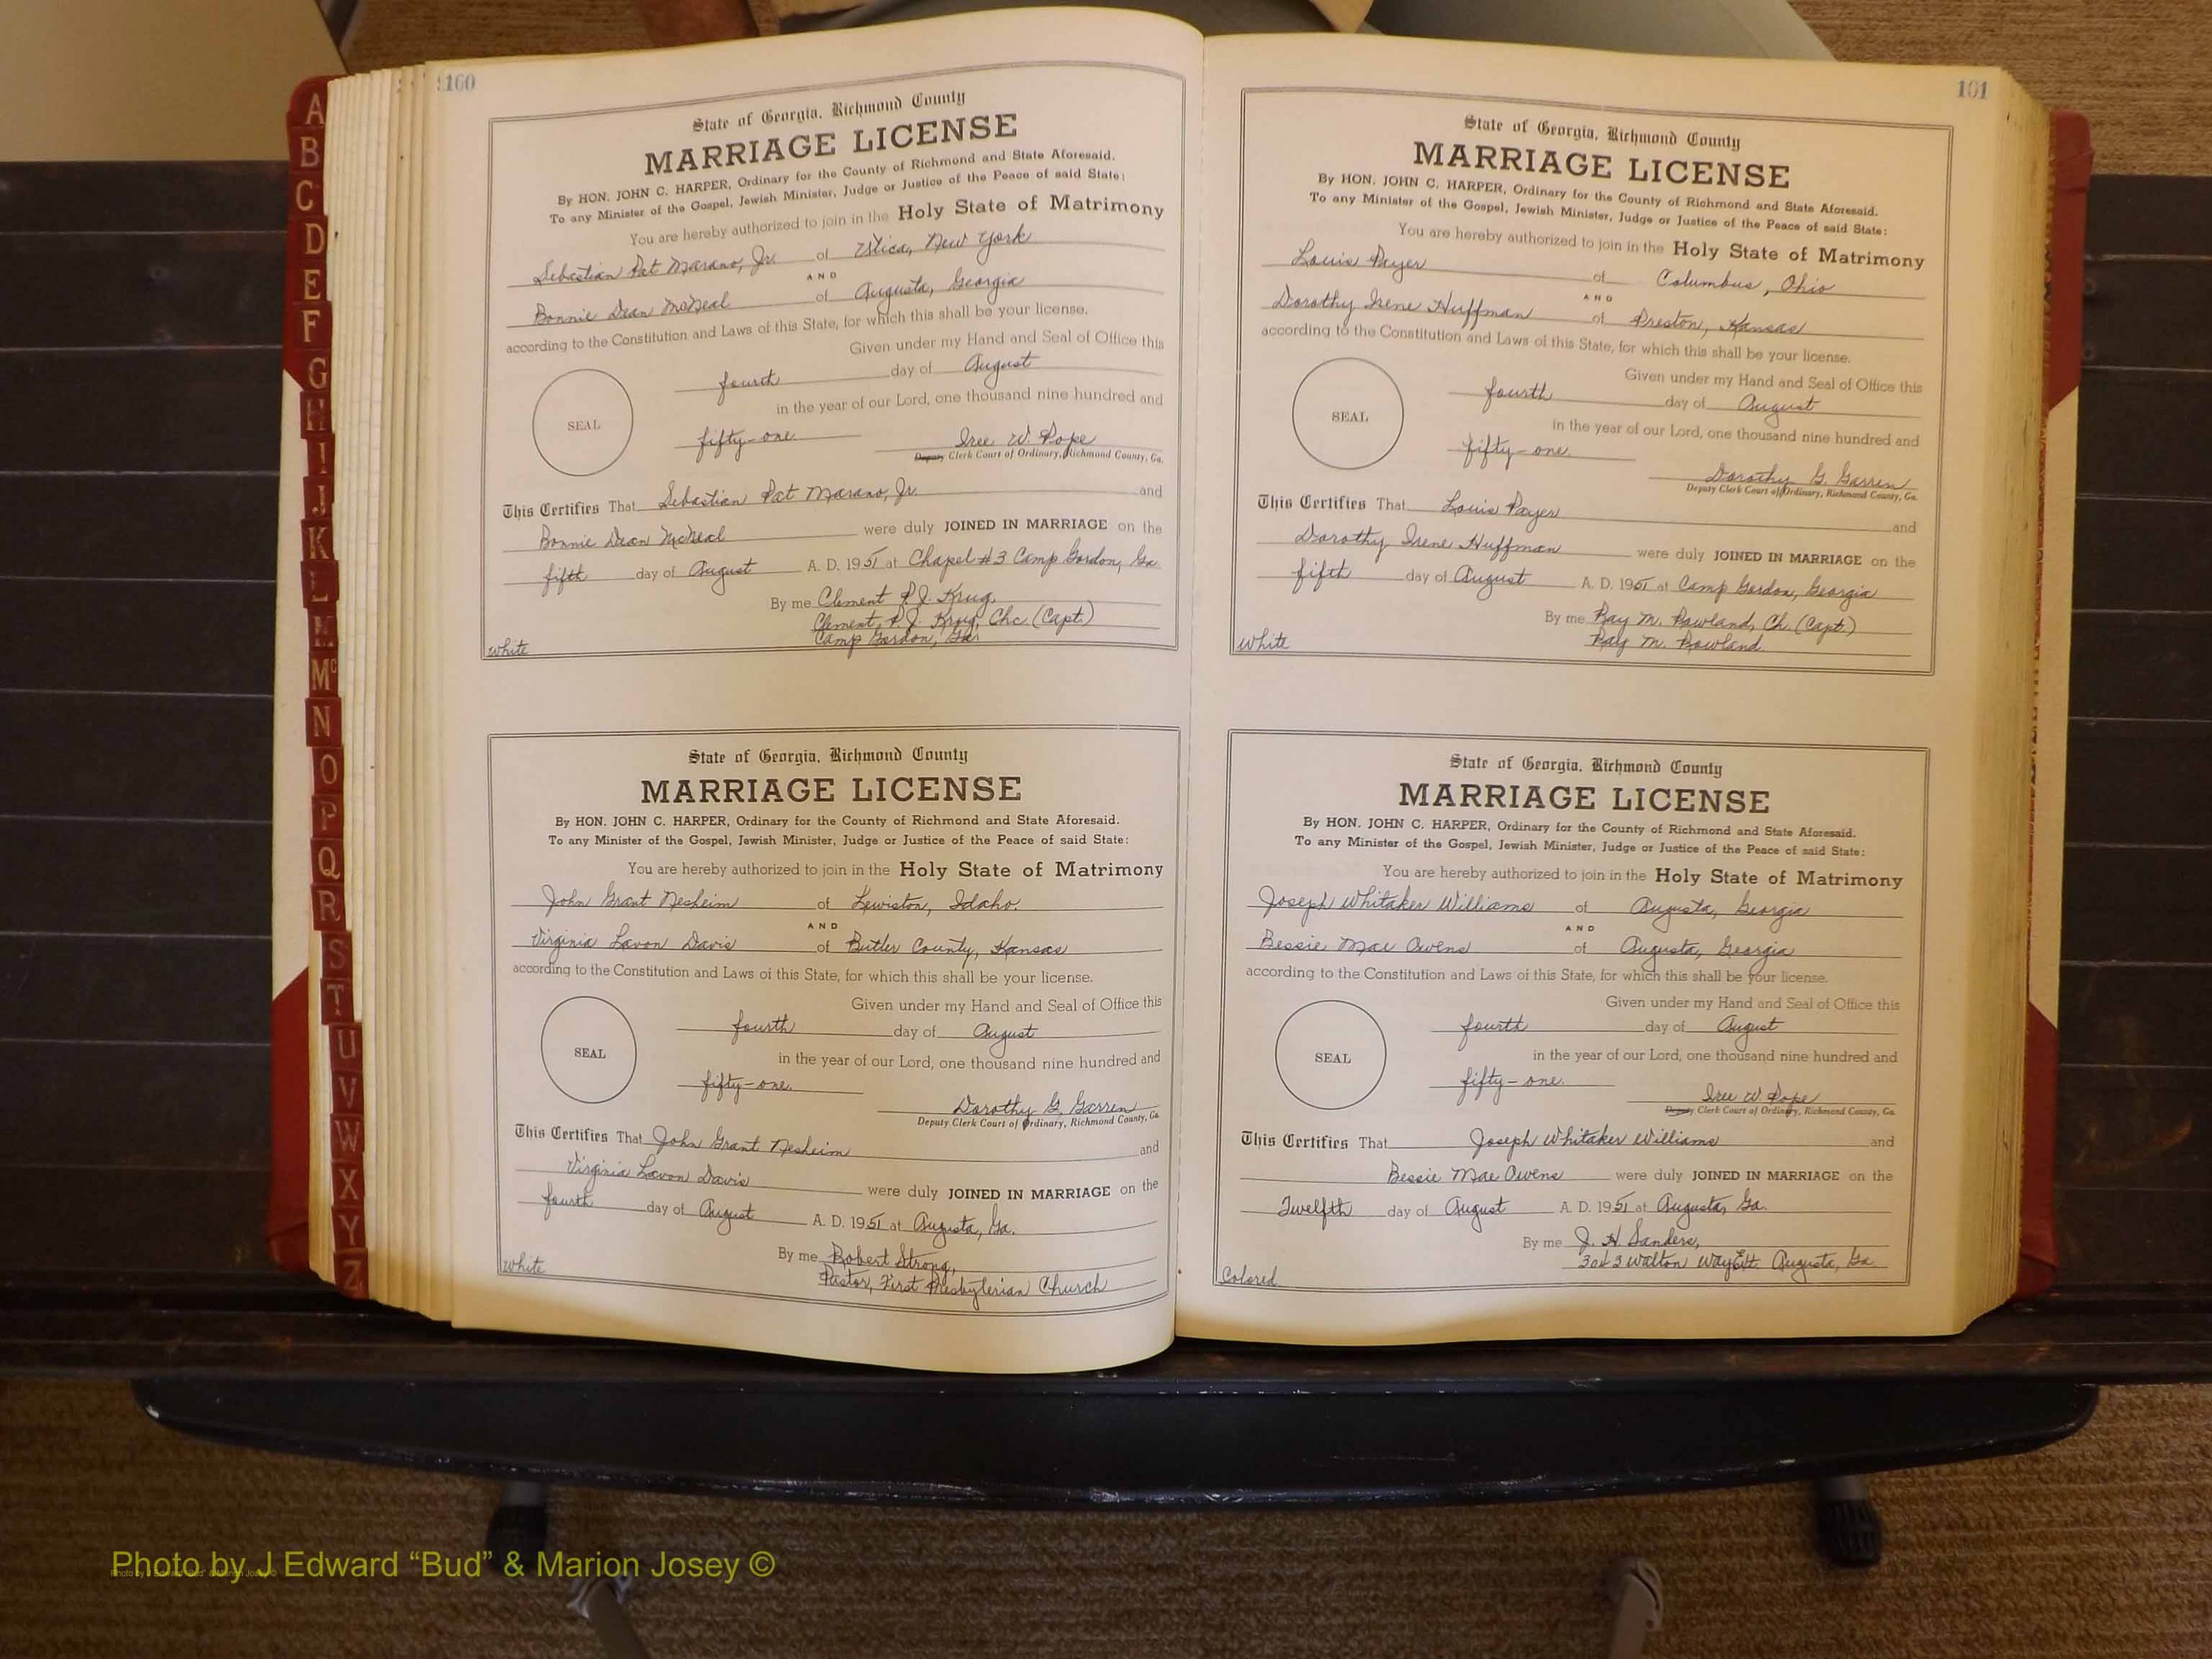 100
State of Georgia, Richmond County
MARRIAGE LICENSE
By HON. JOHN C. HARPER, Ordinary for the County of Richmond and State Aforesaid.
To any Minister of the Gospel, Jewish Minister, Judge or Justice of the Peace of said State:
You are hereby authorized to join in the Holy State of Matrimony
Sebastian Pat Marano, Jr. of Utica, New York
AND
Bonnie Dean McNeal of Augusta, Georgia
according to the Constitution and Laws of this State, for which this shall be your license.
Given under my Hand and Seal of Office this
fourth day of August
in the year of our Lord, one thousand nine hundred and
SEAL
fifty-one. Iree W. Pope
Deputy Clerk Court of Ordinary, Richmond County, Ga.
This Certifies That Sebastian Pat Marano, Jr. and
Bonnie Dean McNeal were duly JOINED IN MARRIAGE on the
fifth day of August A. D. 1951 at Chapel #3 Camp Gordon, Ga.
By me Clement P.J. Krug,
Clement P.J. Krug, Chc. (Capt.)
Camp Gordon, Ga.
White
State of Georgia, Richmond County
MARRIAGE LICENSE
By HON. JOHN C. HARPER, Ordinary for the County of Richmond and State Aforesaid.
To any Minister of the Gospel, Jewish Minister, Judge or Justice of the Peace of said State:
You are hereby authorized to join in the Holy State of Matrimony
John Grant Nesheim of Lewiston, Idaho.
AND
Virginia Lavon Davis of Butler County, Kansas
according to the Constitution and Laws of this State, for which this shall be your license.
Given under my Hand and Seal of Office this
fourth day of August
SEAL
in the year of our Lord, one thousand nine hundred and
fifty-one.
Dorothy G. Garren
Deputy Clerk Court of Ordinary, Richmond County, Ga.
This Certifies That John Grant Nesheim and
Virginia Lavon Davis were duly JOINED IN MARRIAGE on the
fourth day of August A. D. 1951 at Augusta, Ga.
By me Robert Strong,
Pastor, First Presbyterian Church
White
101
State of Georgia, Richmond County
MARRIAGE LICENSE
By HON. JOHN C. HARPER, Ordinary for the County of Richmond and State Aforesaid.
To any Minister of the Gospel, Jewish Minister, Judge or Justice of the Peace of said State:
You are hereby authorized to join in the Holy State of Matrimony
Louis Payer of Columbus, Ohio
AND
Dorothy Irene Huffman of Preston, Kansas
according to the Constitution and Laws of this State, for which this shall be your license.
Given under my Hand and Seal of Office this
fourth day of August
SEAL
in the year of our Lord, one thousand nine hundred and
fifty-one.
Dorothy G. Garren
Deputy Clerk Court of Ordinary, Richmond County, Ga.
This Certifies That Louis Payer and
Dorothy Irene Huffman were duly JOINED IN MARRIAGE on the
fifth day of August A. D. 1951 at Camp Gordon, Georgia
By me Ray M. Rowland, Ch. (Capt.)
Ray M. Rowland
White
State of Georgia, Richmond County
MARRIAGE LICENSE
By HON. JOHN C. HARPER, Ordinary for the County of Richmond and State Aforesaid.
To any Minister of the Gospel, Jewish Minister, Judge or Justice of the Peace of said State:
You are hereby authorized to join in the Holy State of Matrimony
Joseph Whitaker Williams of Augusta, Georgia
AND
Bessie Mae Owens of Augusta, Georgia
according to the Constitution and Laws of this State, for which this shall be your license.
Given under my Hand and Seal of Office this
fourth day of August
SEAL
in the year of our Lord, one thousand nine hundred and
fifty-one.
Iree W. Pope
Deputy Clerk Court of Ordinary, Richmond County, Ga.
This Certifies That Joseph Whitaker Williams and
Bessie Mae Owens were duly JOINED IN MARRIAGE on the
Twelfth day of August A. D. 1951 at Augusta, Ga.
By me J. H. Sanders,
Walton Way Ext. Augusta, Ga
Colored
A
B
C
D
E
F
G
H
I
J
K
L
M
Mc
N
O
P
Q
R
S
T
U
V
W
X
Y
Z
Photo by J Edward “Bud” & Marion Josey ©
Photo by J Edward “Bud” & Marion Josey ©